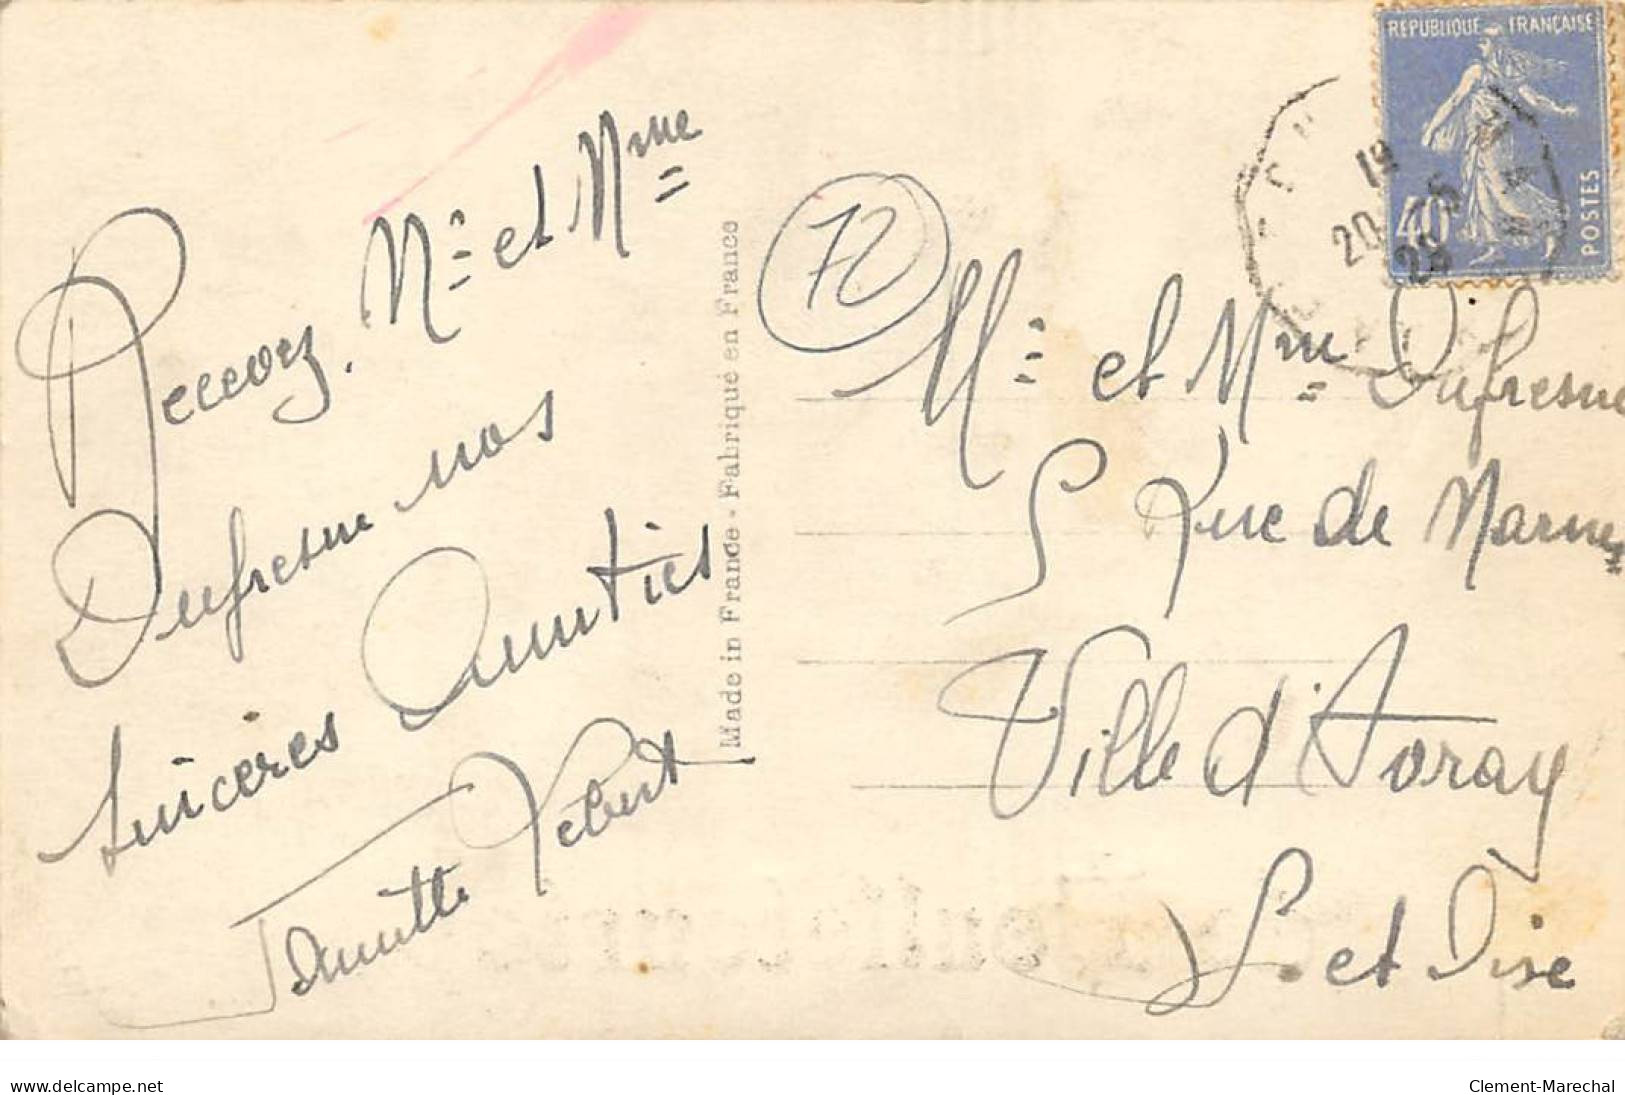 Recevez, Mr et Mme
Dufresne nos
sincères Amitiés
Made in France - Fabriqué en France
72
Mr et Mme Dufresne
5 Rue de Marnes
Ville d'Avray
S. et Oise
REPUBLIQUE FRANÇAISE
40
POSTES
19
20 - 5
28
www.delcampe.net
Clement-Marechal